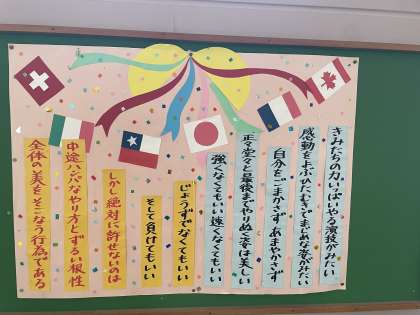 きみたちの力いっぱいやる演技がみたい
感動をよぶひたむきでまじめな姿がみたい
自分をごまかさず あまやかさず
正々堂々と最後までやりぬく姿は美しい
強くなくてもいい 速くなくてもいい
じょうずでなくてもいい
そして負けてもいい
しかし絶対に許せないのは
中途ハンパなやり方とずるい根性
全体の美をそこなう行為である